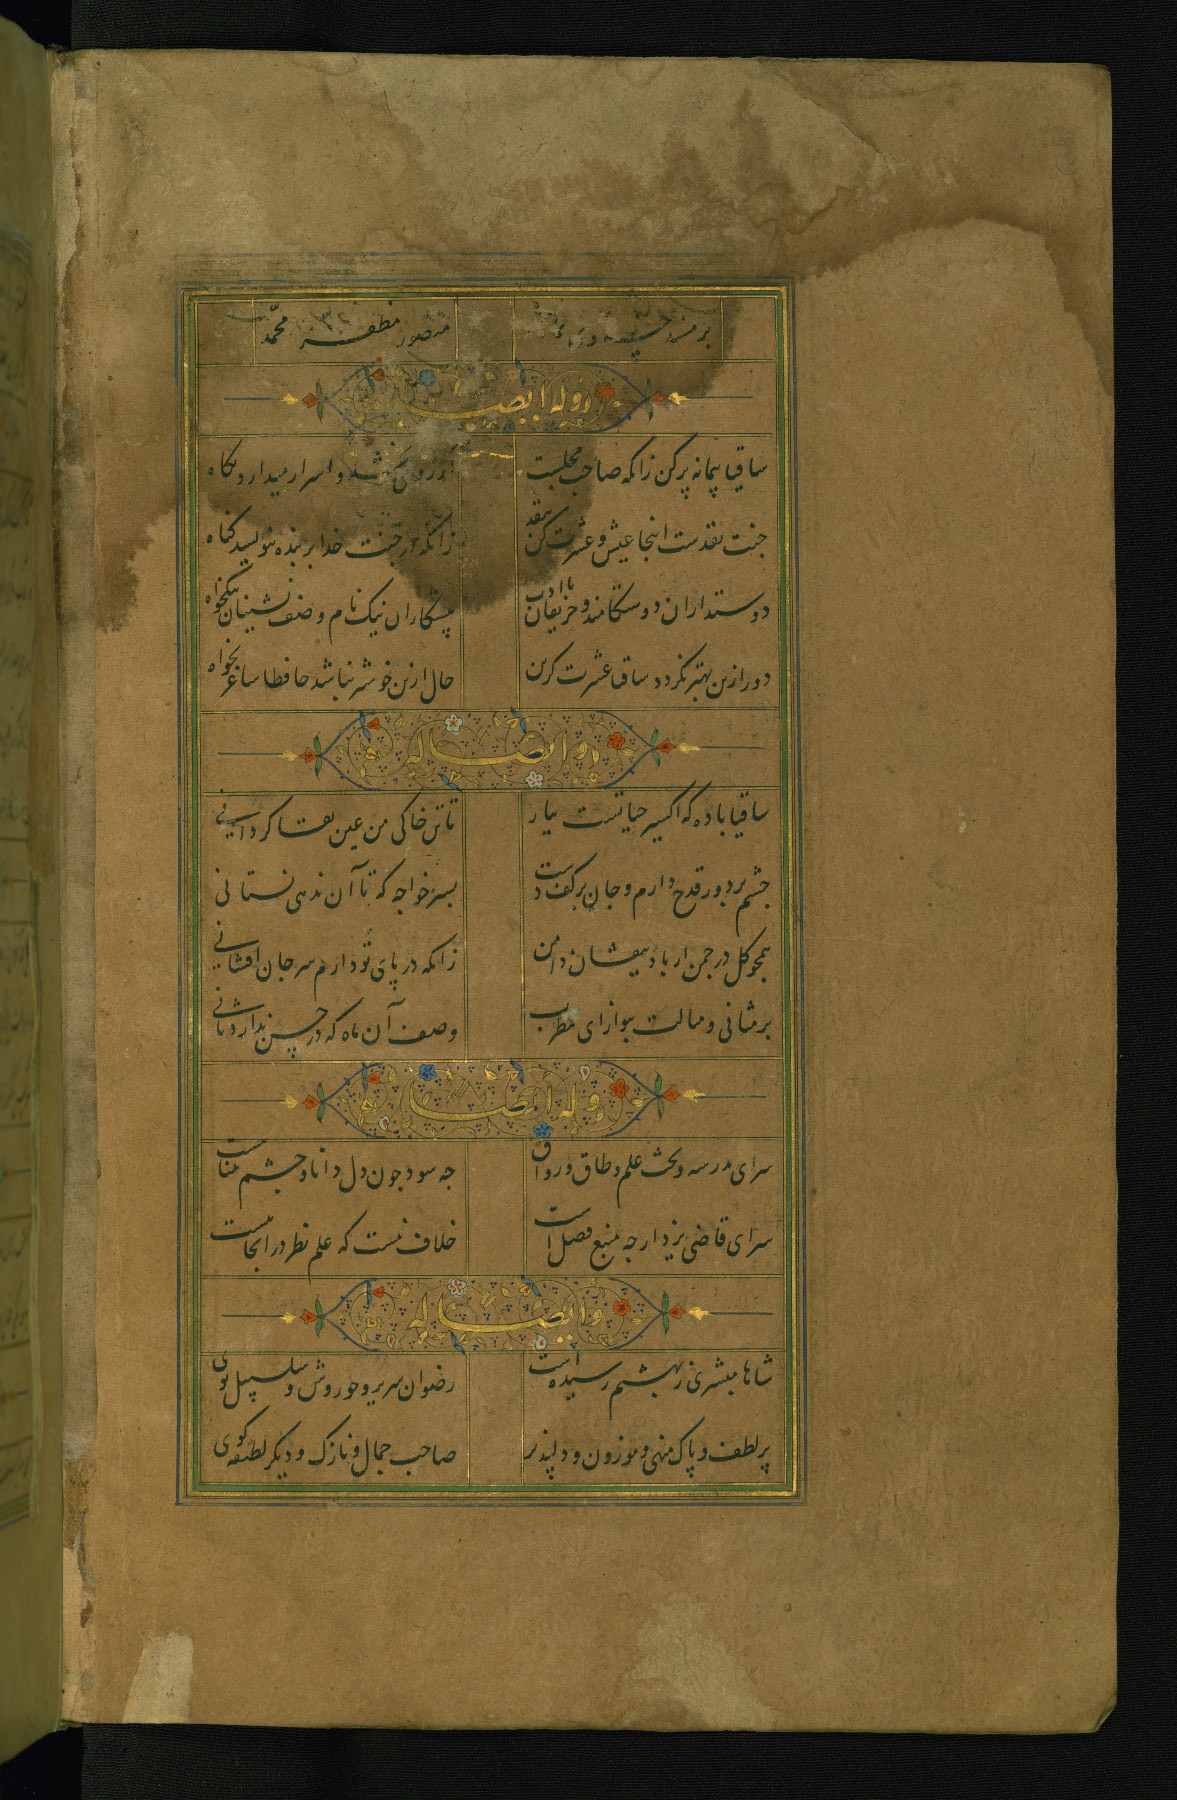 بر مسند خسروی
منصور مظفر محمد
وله ایضا
ساقیا پیمانه پر کن زانکه صاحب مجلست
و اسرار میدارد نکاه
جنت نقدست اینجا عیش و عشرت کن بنقد
زانکه در جنت خدا بر بنده ننویسد کناه
دوستداران دوستکامند و حریفان با ادب
پیشکاران نیک نام و صف نشینان نیکخواه
دور ازین بهتر نکردد ساقیا عشرت کزین
حال ازین خوشتر نباشد حافظا ساغر بخواه
وله ایضا
ساقیا باده که اکسیر حیاتست بیار
تا تن خاکی من عین بقا کردانی
جشم بر دور قدح دارم و جان بر کف دست
بسر خواجه که تا آن ندهی نستانی
همجو کل در جمن از باد میفشان دامن
زانکه در پای تو دارم سر جان افشانی
بر مثانی و مثالث بنواز ای مطرب
وصف آن ماه که در حسن ندارد ثانی
وله ایضا
سرای مدرسه و بحث علم و طاق و رواق
جه سود جون دل دانا و جشم بینا نیست
سرای قاضی یزد ارجه منبع فضل است
خلاف نیست که علم نظر در انجا نیست
وله ایضا
شاها مبشری ز بهشتم رسیده است
رضوان سریر و حوروش و سلسبیل موی
پر لطف و پاک منهی و موزون و دلپذیر
صاحب جمال و نازک و دیکر لطیفه کوی